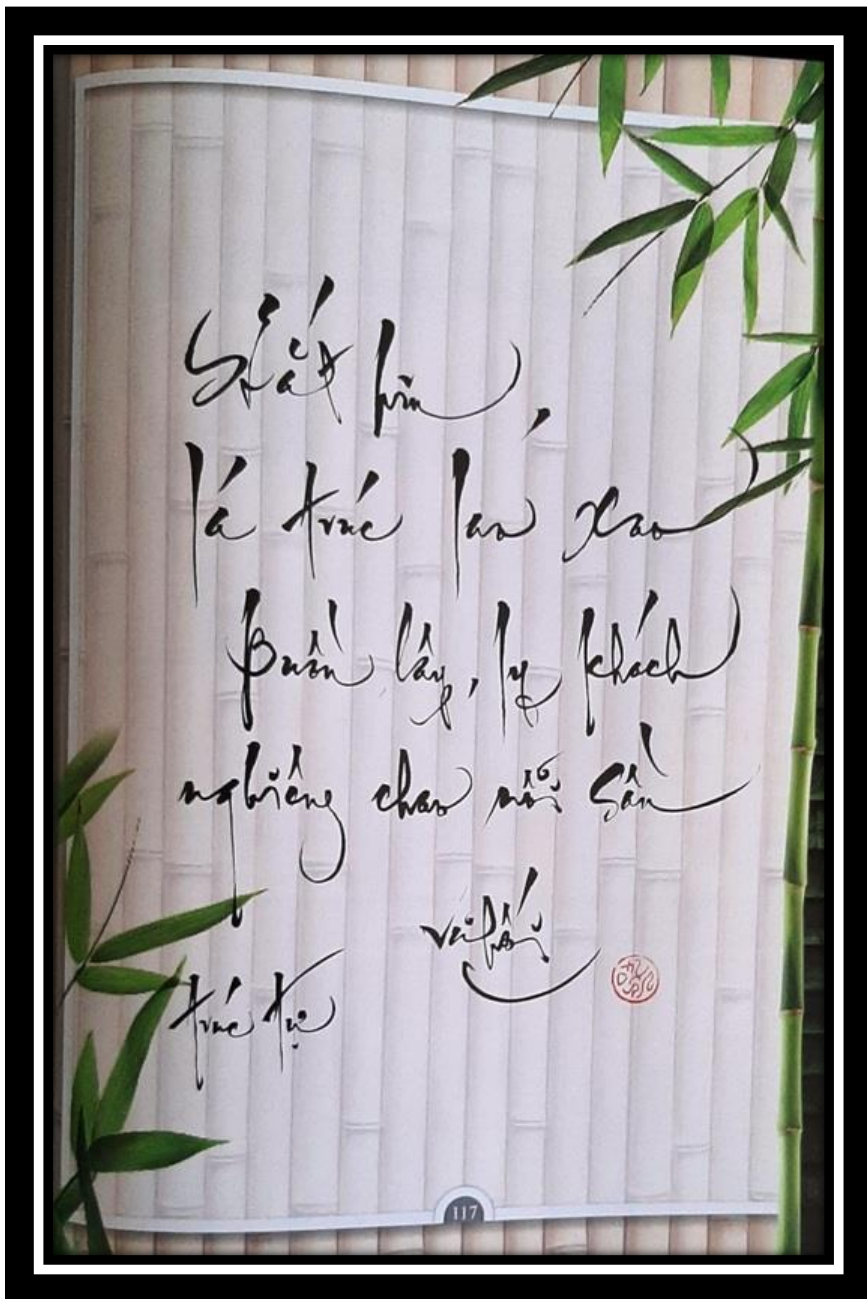 Hắt hiu
lá trúc lao xao
Buồn lây, ly khách
nghiêng chao nỗi sầu
Vũ Hối
trúc tự
117